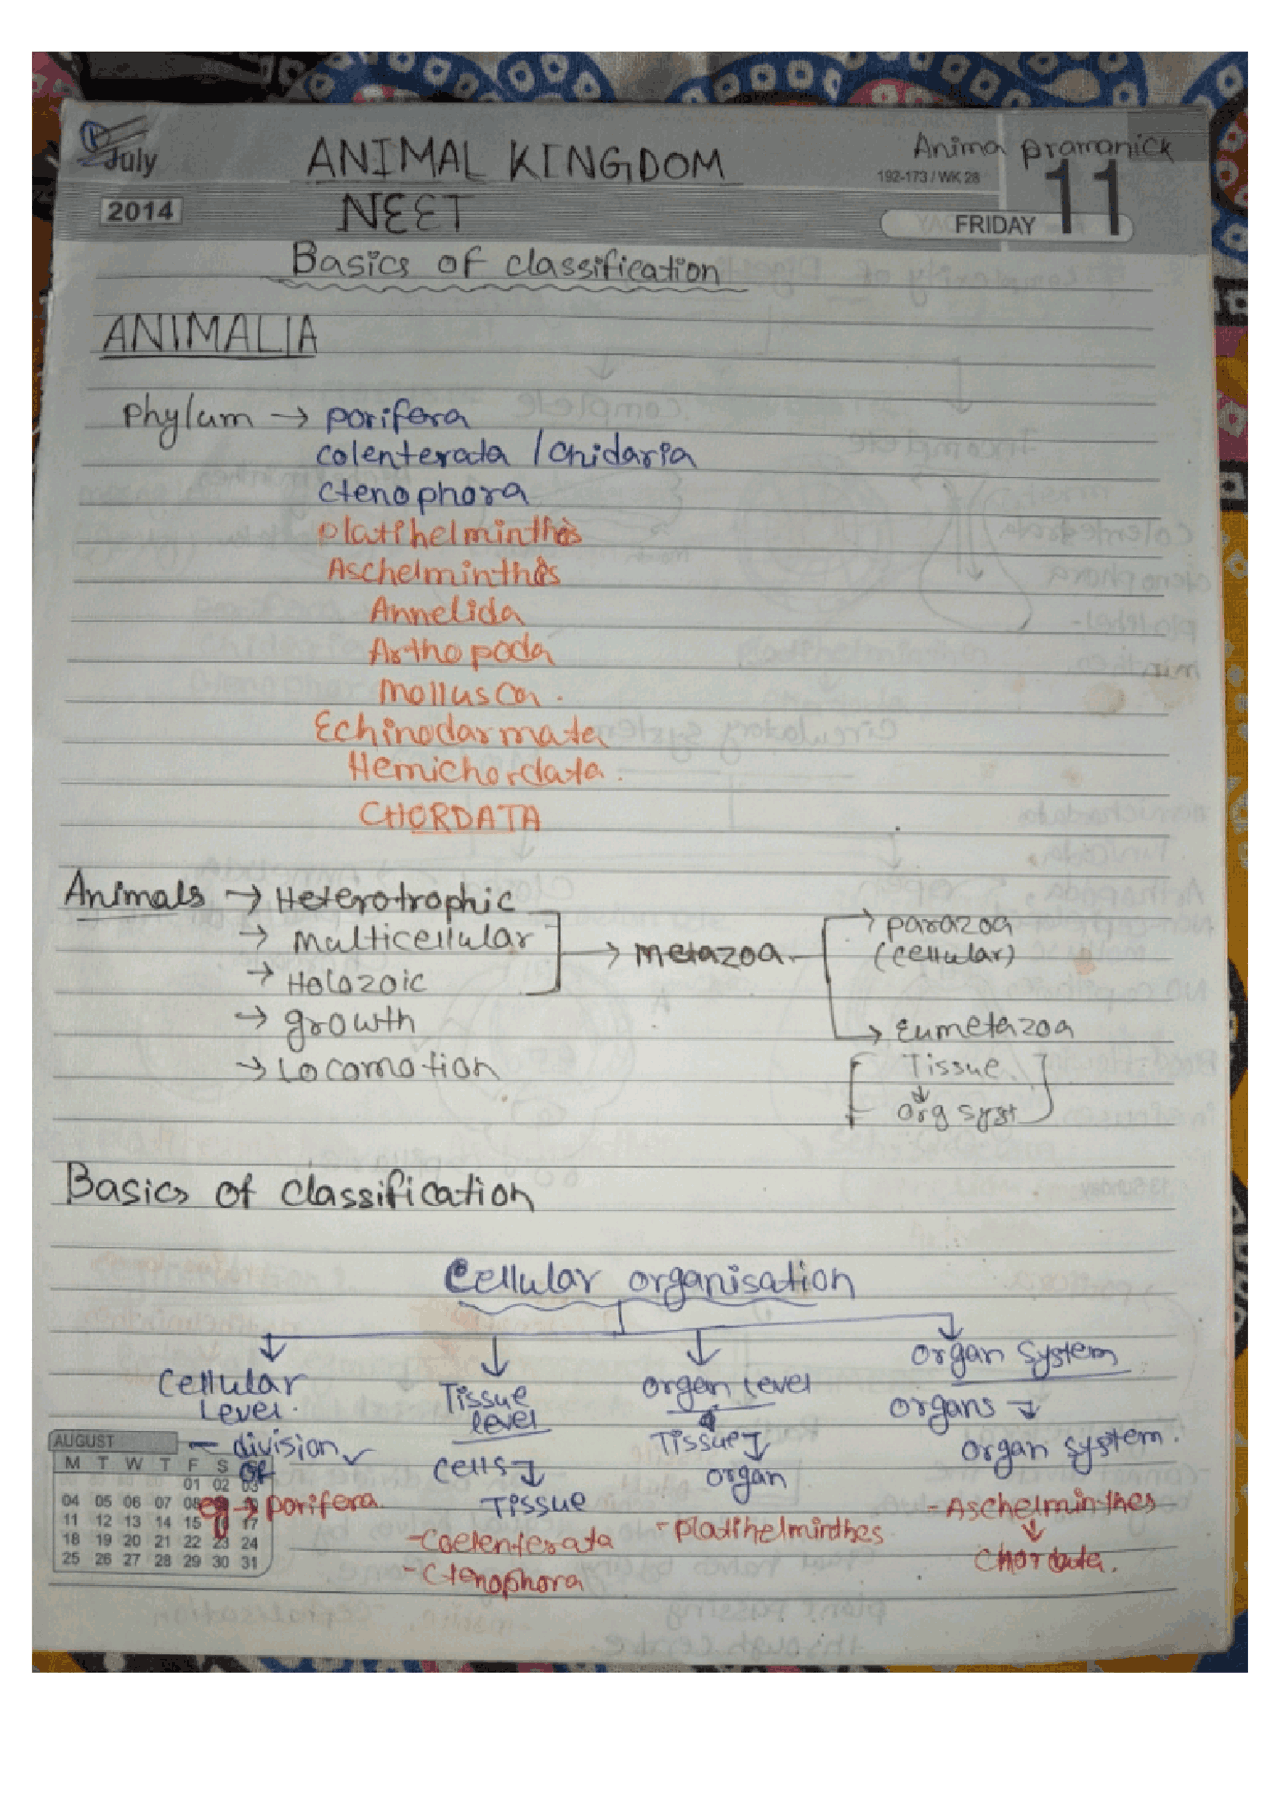 July
2014
ANIMAL KINGDOM
NEET
Anima pramanick
192-173 / WK 28
FRIDAY 11
Basics of classification
ANIMALIA
Phylum → porifera
colenterata / Cnidaria
ctenophora
platihelminthes
Aschelminthes
Annelida
Arthopoda
Mollusca.
Echinodarmata
Hemichordata.
CHORDATA
Animals → Heterotrophic
→ multicellular → metazoa
→ Holozoic
→ growth
→ Locomotion
→ parazoa
(cellular)
→ Eumetazoa
Tissue.
↓
org syst
Basics of classification
Cellular organisation
Cellular
Level.
– division
of
eg → porifera.
Tissue
level
cells ↓
Tissue
- Coelenterata
- Ctenophora
organ Level
Tissue ↓
organ
- platihelminthes
organ system
organs ↓
organ system.
- Aschelminthes
↓
Chordata.
AUGUST
M T W T F S
01 02 03
04 05 06 07 08
11 12 13 14 15 17
18 19 20 21 22 23 24
25 26 27 28 29 30 31